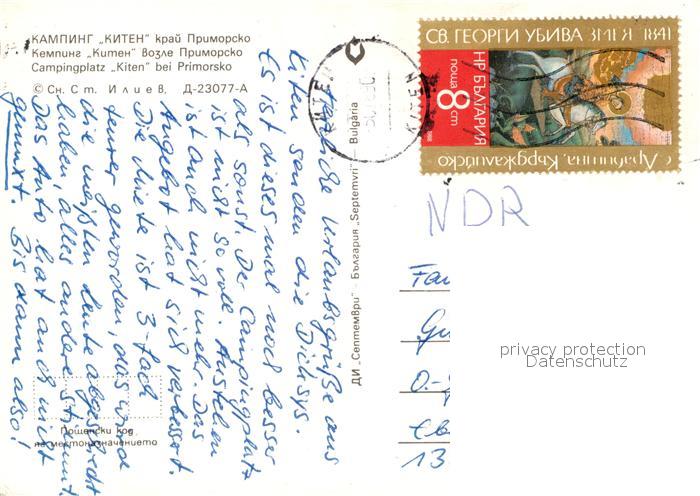 КАМПИНГ „КИТЕН" край Приморско
Кемпинг „Китен" возле Приморско
Campingplatz „Kiten" bei Primorsko
© Сн. Ст. Илиев, Д-23077-А
СВ. ГЕОРГИ УБИВА ЗМЕЯ 1841
НР БЪЛГАРИЯ
поща 8 ст
КИТЕН
KITEN
Herzliche Urlaubsgrüße aus
Kiten senden die
Es ist dieses mal noch besser
als sonst. Der Campingplatz
ist nicht so voll. Anstehen
ist auch nicht mehr. Das
Angebot hat sich verbessert.
Die Miete ist 3-fach
teurer geworden, das wird
die meisten Leute abgeschreckt
haben, alles andere stimmt.
Das Auto hat auch nicht
gemuxt. Bis dann also!
ДИ „Септември" – България „Septemvri" – Bulgária
NDR
Fam
Gu
0-
Eb
13
privacy protection
Datenschutz
Пощенски код
на местоназначението